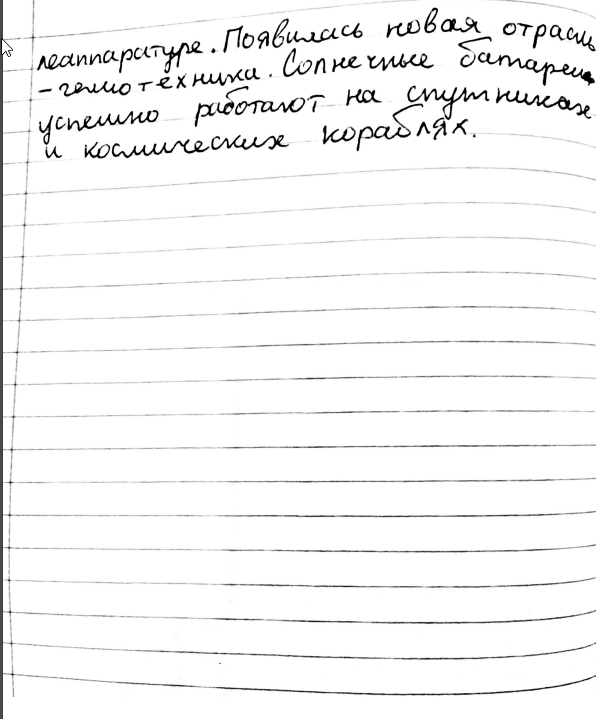 леаппаратуре. Появилась новая отрасль
- гелиотехника. Солнечные батареи
успешно работают на спутниках
и космических кораблях.